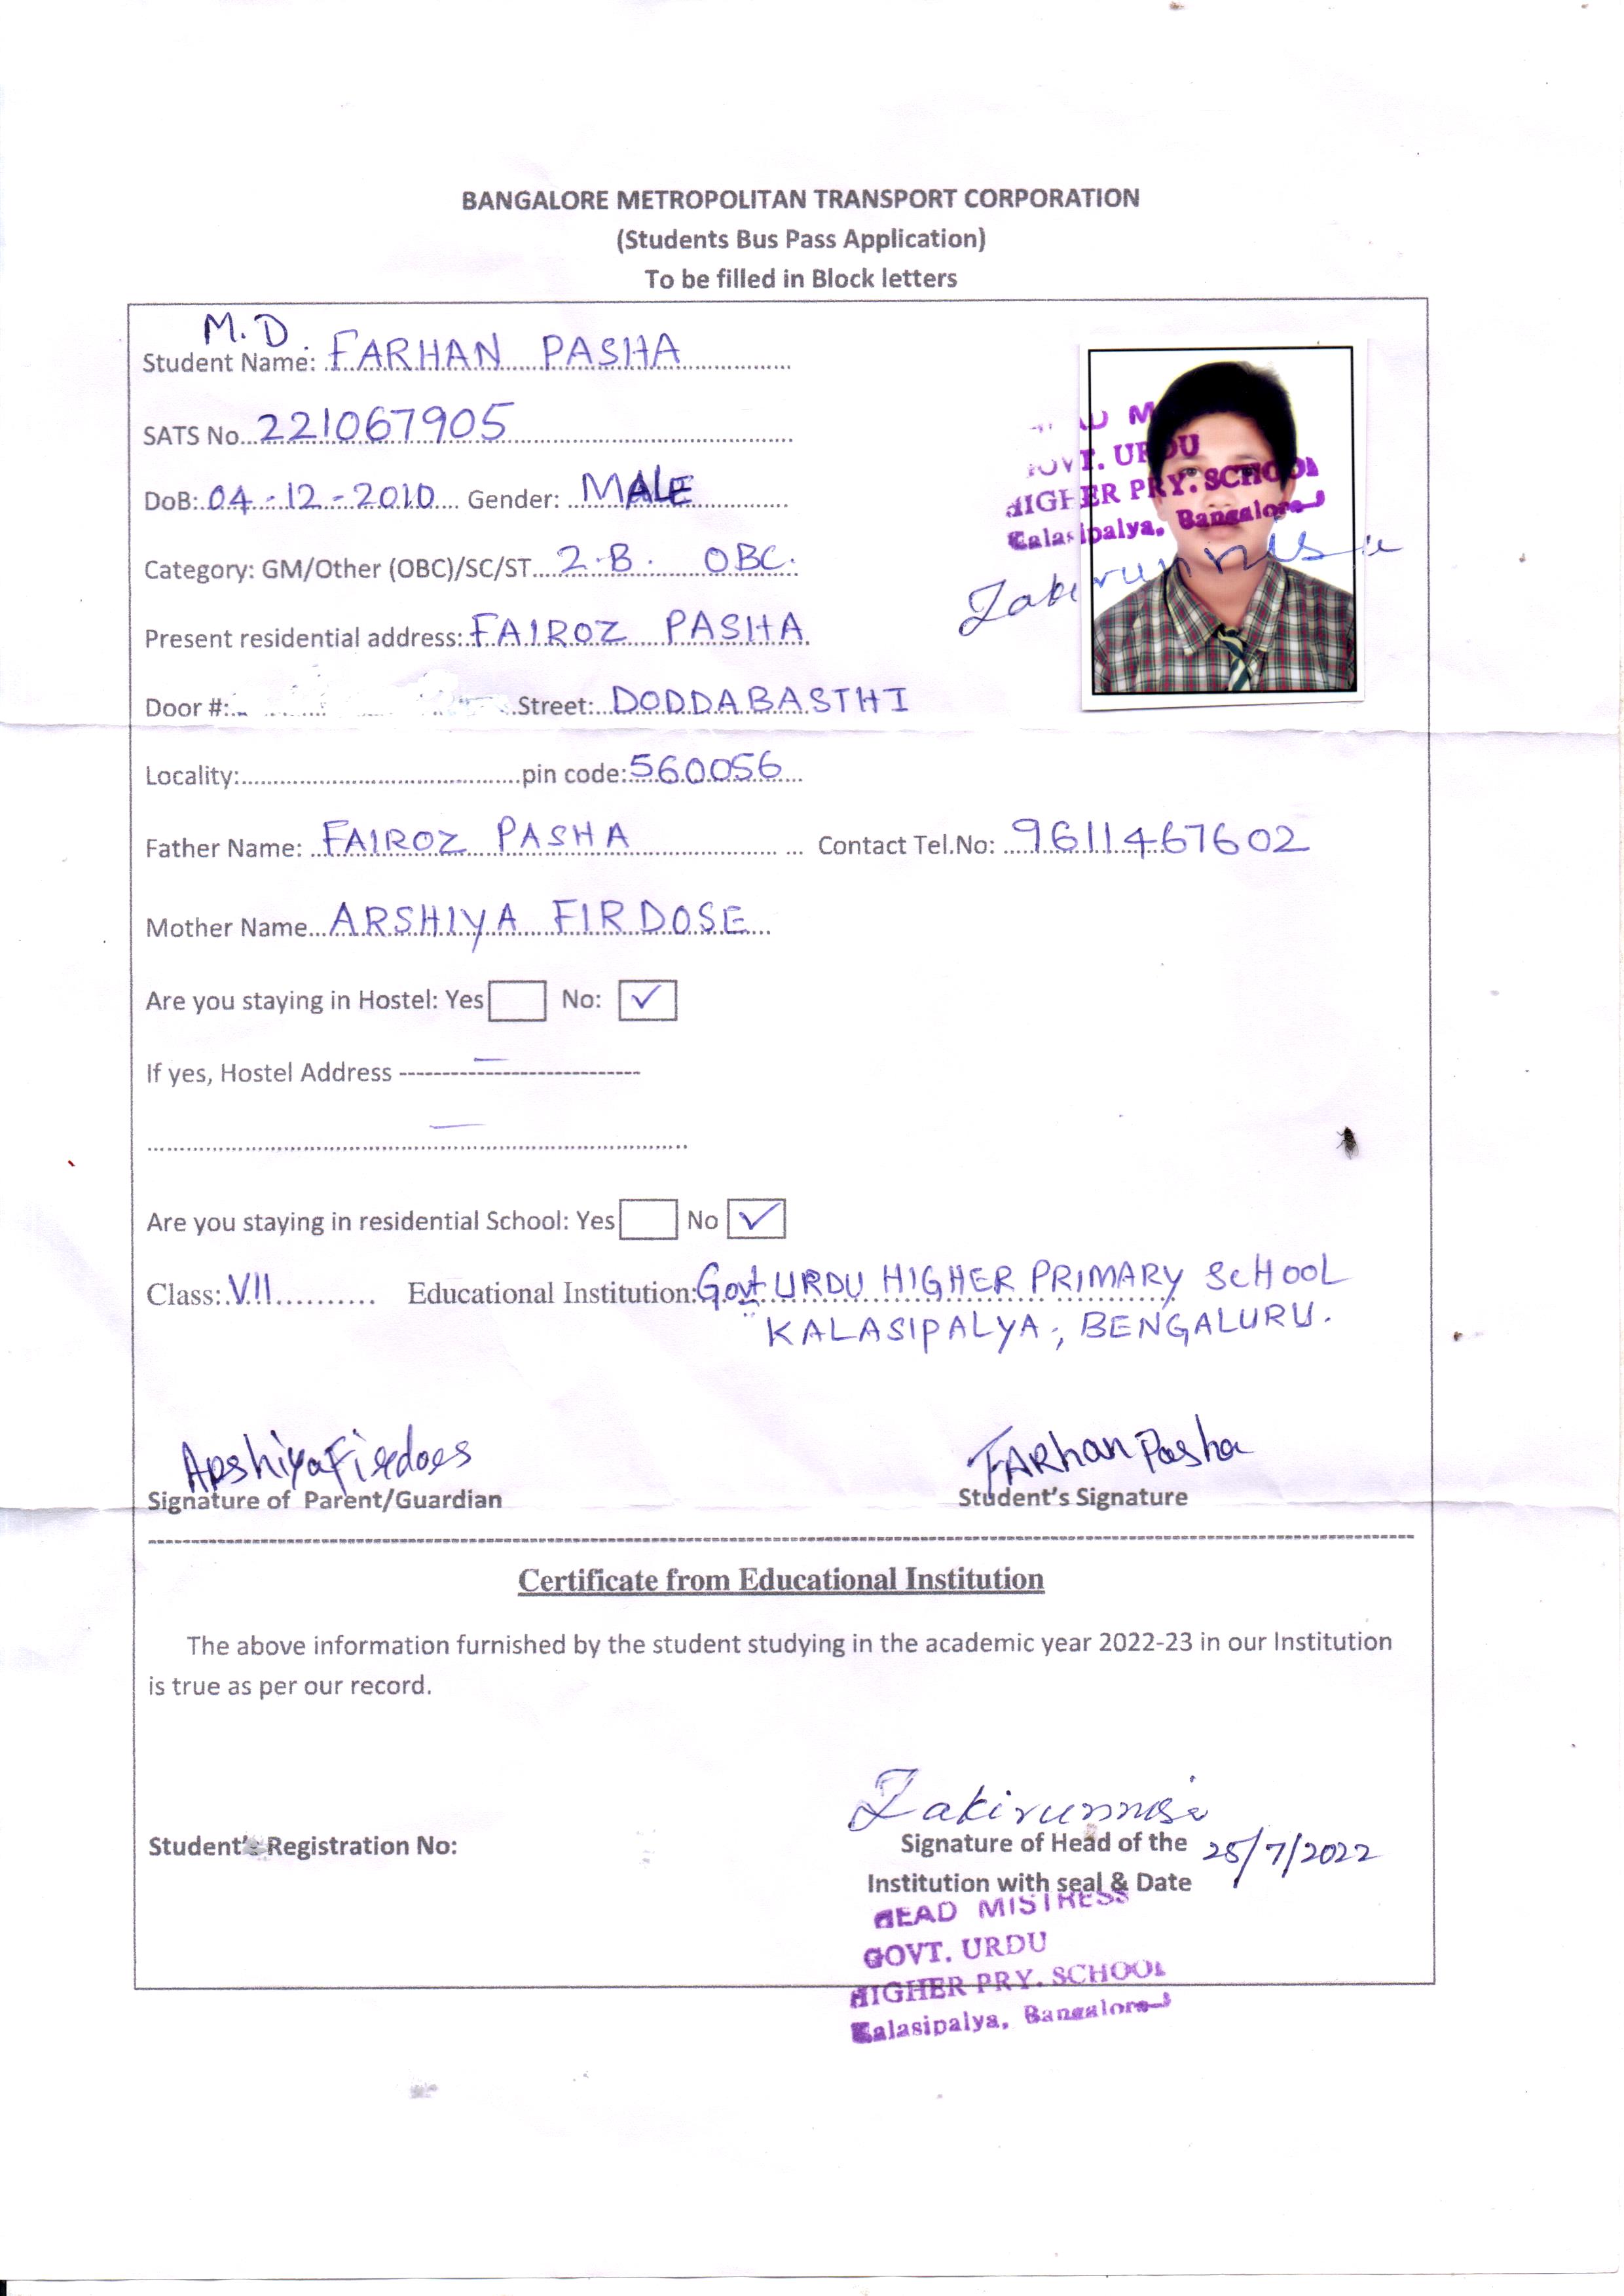 BANGALORE METROPOLITAN TRANSPORT CORPORATION
(Students Bus Pass Application)
To be filled in Block letters
M.D
Student Name: FARHAN PASHA
SATS No 221067905
DoB: 04-12-2010 Gender: MALE
Category: GM/Other (OBC)/SC/ST 2.B. OBC.
Present residential address: FAIROZ PASHA
Door #: Street: DODDABASTHI
Locality: pin code: 560056
Father Name: FAIROZ PASHA Contact Tel.No: 9611467602
Mother Name ARSHIYA FIRDOSE
GOVT. URDU
HIGHER PRY. SCHOOL
Kalasipalya, Bangalore
Zakirunnisa
Are you staying in Hostel: Yes No: ✓
If yes, Hostel Address
Are you staying in residential School: Yes No ✓
Class: VII Educational Institution: Govt URDU HIGHER PRIMARY SCHOOL
KALASIPALYA, BENGALURU.
Arshiya Firdoes FARhan Pasha
Signature of Parent/Guardian Student's Signature
Certificate from Educational Institution
The above information furnished by the student studying in the academic year 2022-23 in our Institution
is true as per our record.
Zakirunnisa
Student's Registration No: Signature of Head of the 25/7/2022
Institution with seal & Date
HEAD MISTRESS
GOVT. URDU
HIGHER PRY. SCHOOL
Kalasipalya, Bangalore